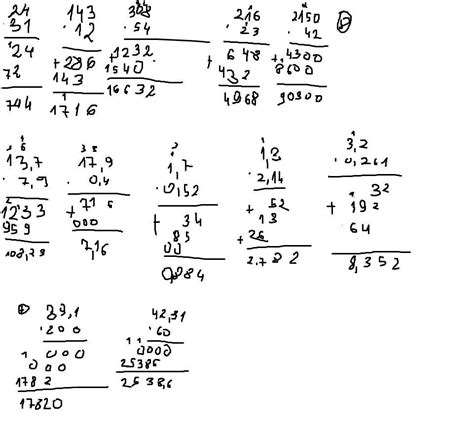 24 143 308 216 2150
.31 .12 .54 .23 .42
24 + 286 + 1232 + 648 + 4300
72 143 1540 432 8600
744 1716 16632 4968 90300
13,7 17,9 1,7 1,3 3,2
. 7,9 . 0,4 . 0,52 . 2,14 . 0,261
1233 + 716 + 34 + 52 32
959 000 85 13 + 192
108,23 7,16 00 + 26 64
0,884 2,782 8,352
39,1 42,31
.200 .60
000 0000
000 25386
1782 2538,6
17820